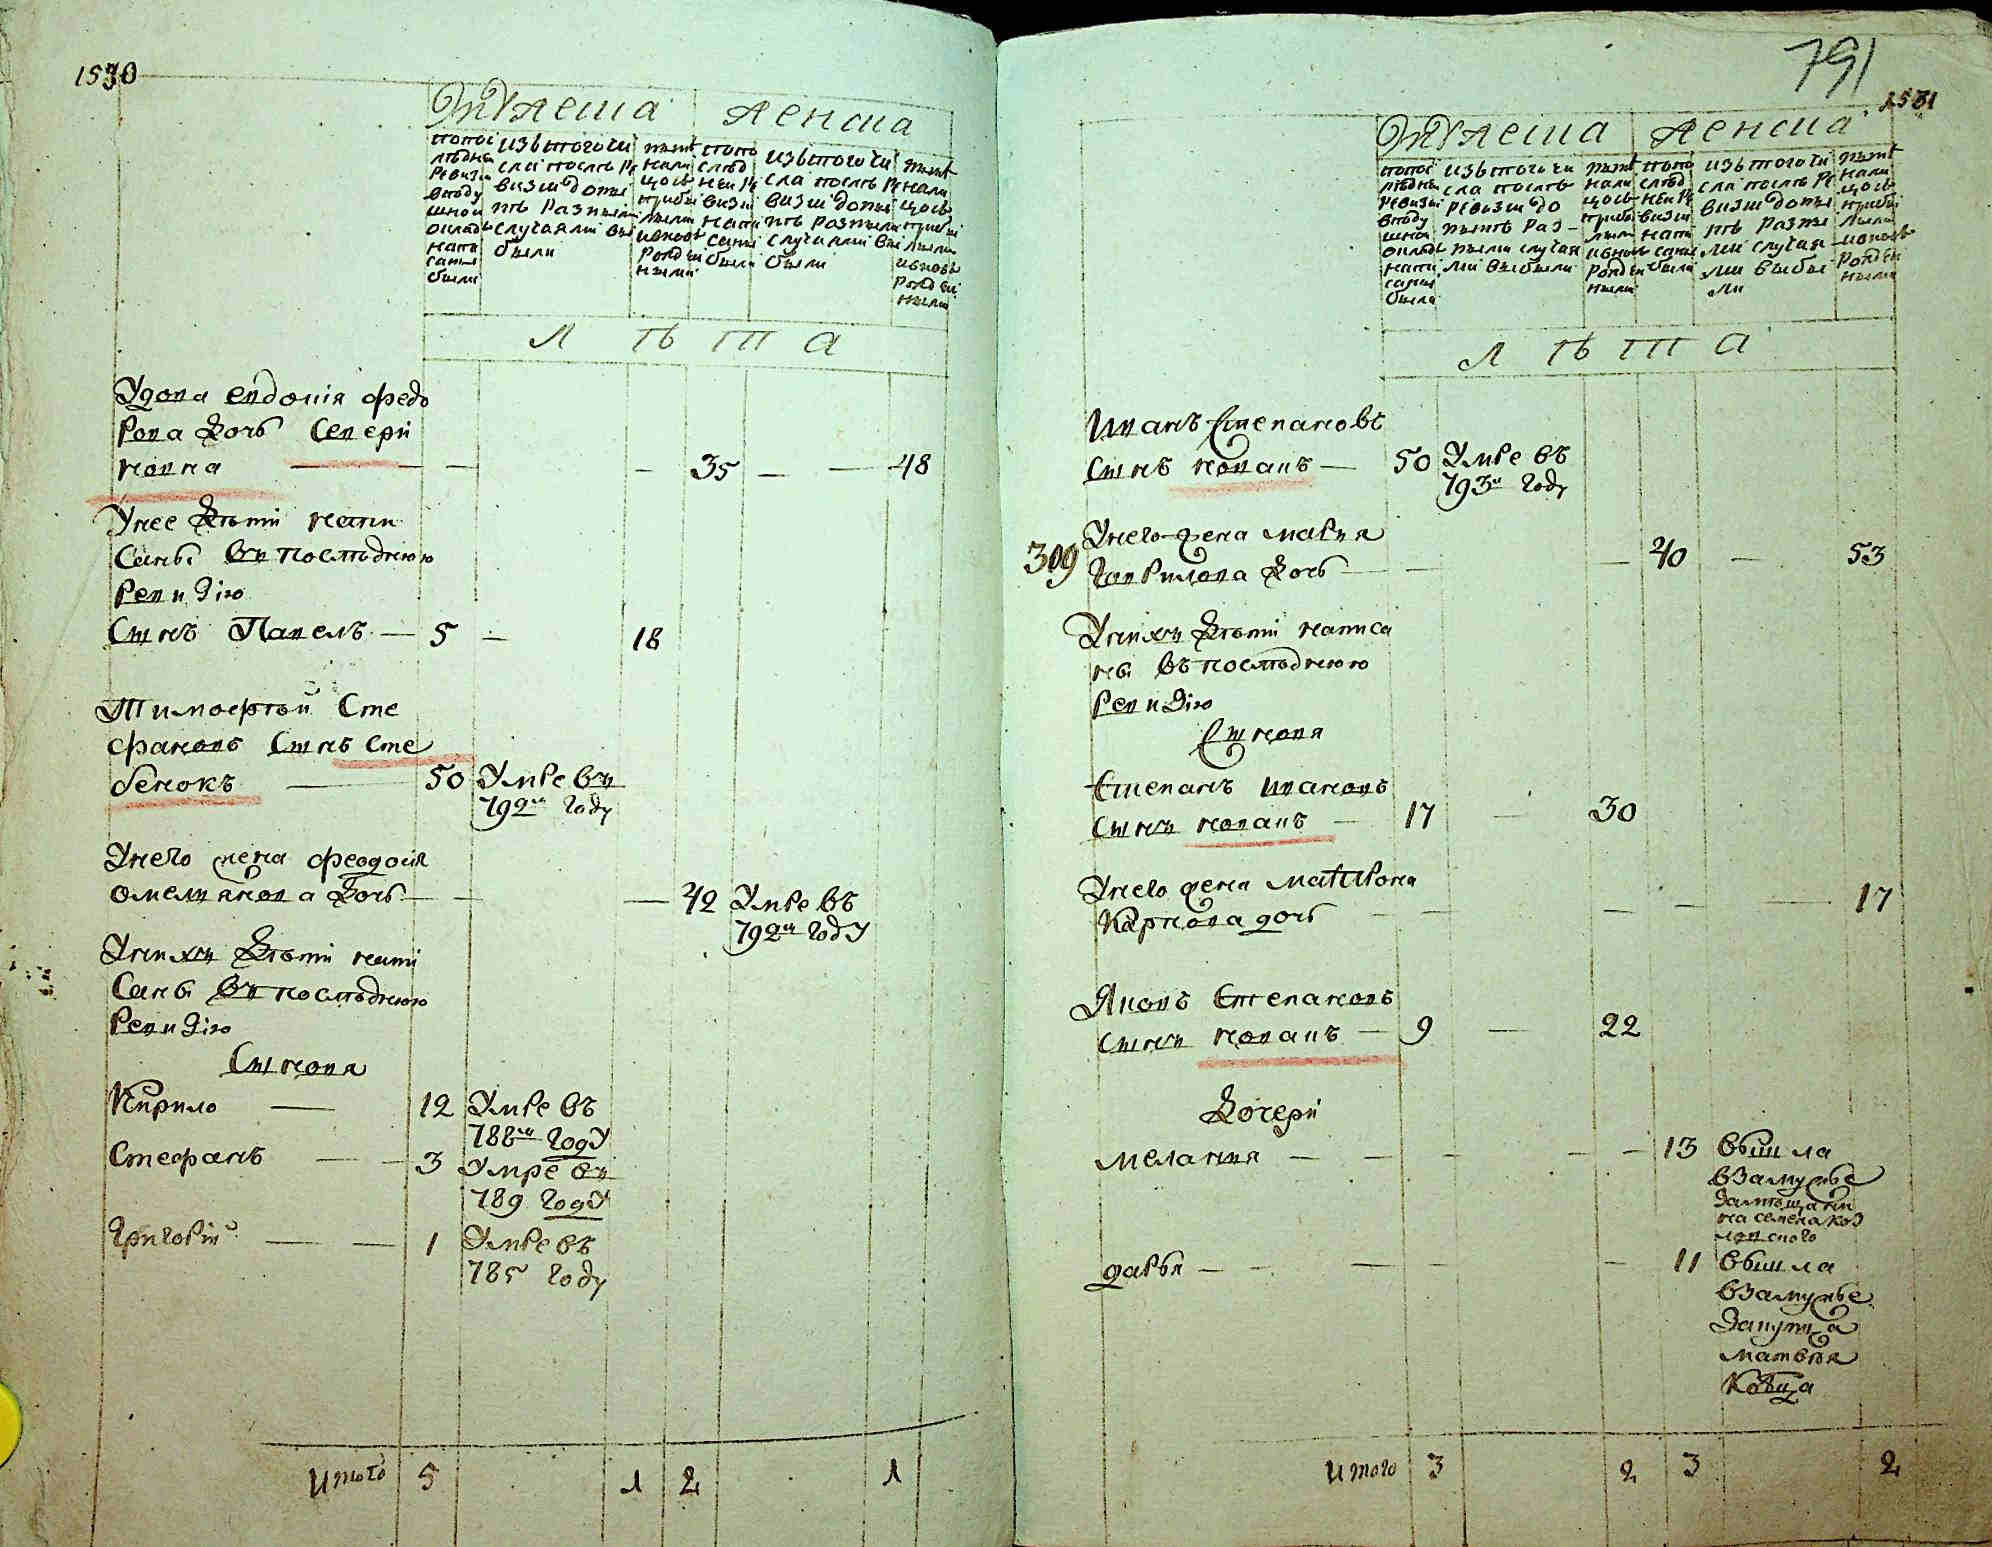 1530
Мужеска женска
по пос
лѣдней
ревизіи
в подушной
оклад
напи
саны
были
изътого чи
сла послѣ ре
визіи до ны
нѣ разными
случаями вы
были
ныне
нали
цо съ
прибы
лыми
и вновь
рожден
ными
по по
слѣд
ней ре
визіи
напи
саны
были
изътого чи
сла послѣ ре
визіи до ны
нѣ разными
случаями вы
были
ныне
нали
цо съ
прибы
лыми
и вновь
рожден
ными
Л ѣ т а
Удова евдокія федо
рова дочь севери
новна — 35 — 48
Унее дѣти напи
саны въ последнюю
ревизію
Сынъ Павелъ — 5 — 18
Тимофѣй Сте
фановъ сынъ сте
бенокъ — 50 Умре въ
792м году
Унего жена феодосія
омелянова дочь — 42 Умре въ
792м году
Унихъ дѣти напи
саны въ последнюю
ревизію
Сыновя
Кирило — 12 Умре въ
788м году
Стефанъ — 3 Умре въ
789 году
Григорій — 1 Умре въ
785 году
Итого 5 1 2 1
791
1531
Мужеска женска
по пос
лѣдней
ревизіи
в поду
шной
оклад
напи
саны
были
изътого чи
сла послѣ
ревизіи до
нынѣ раз
ными случая
ми выбыли
ныне
нали
цо съ
прибы
лыми
и вновь
рожден
ными
по по
слѣд
ней ре
визіи
напи
саны
были
изътого чи
сла послѣ ре
визіи до ны
нѣ разны
ми случая
ми выбы
ли
ныне
нали
цо съ
прибы
лыми
и вновь
рожден
ными
Л ѣ т а
Иванъ Степановъ
сынъ коваль — 50 Умре въ
793м году
309
Унего жена марія
гаврилова дочь — 40 — 53
Унихъ дѣти написа
ны въ последнюю
ревизію
Сыновя
Степанъ ивановъ
сынъ — 17 — 30
Унего жена матрона
Карпова дочь — 17
Яковъ Степановъ
сынъ — 9 — 22
дочери
мелания — 13 вышла
взамужье
замѣщани
на семена коз
ловского
дарья — 11 вышла
взамужье
матвѣя
Итого 3 2 3 2